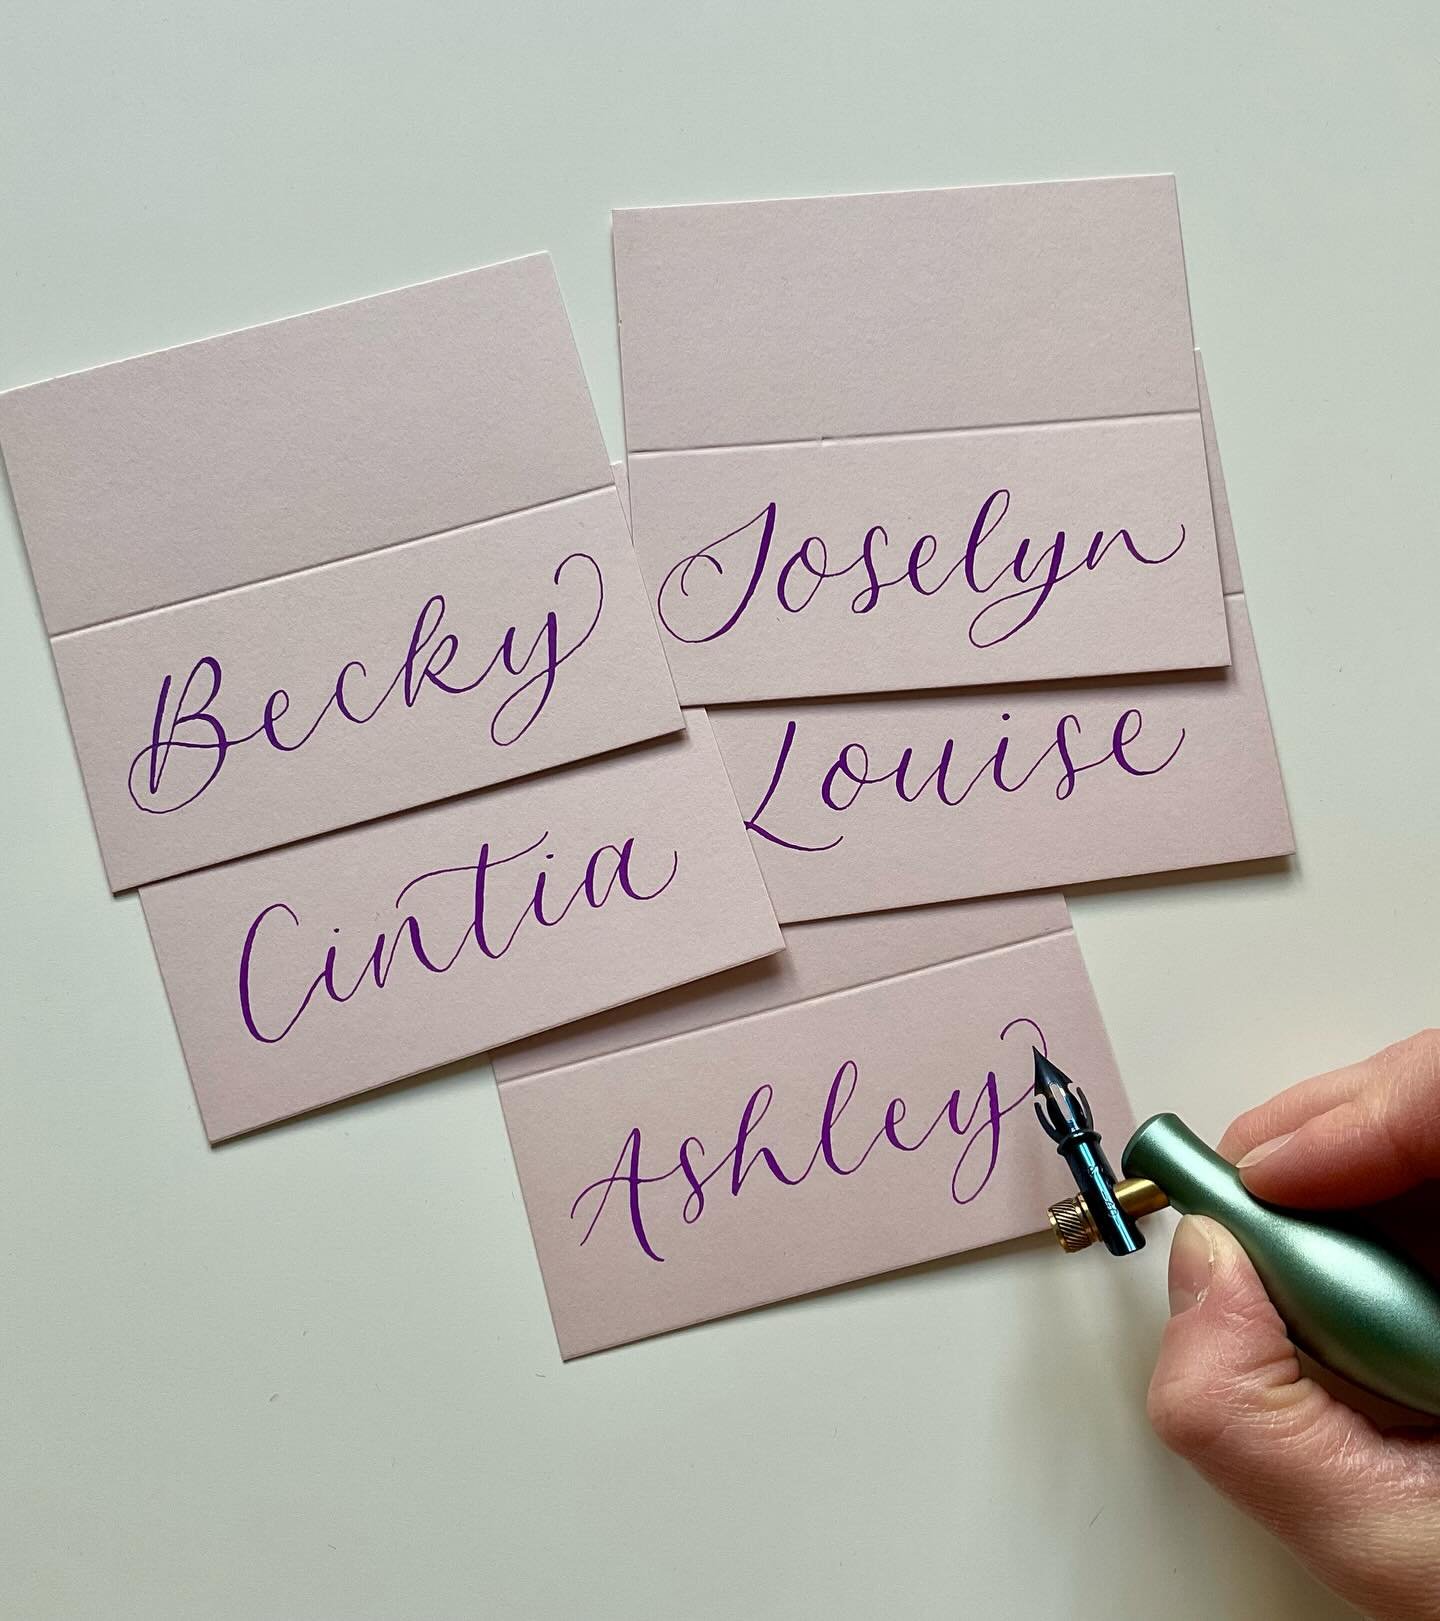 Becky
Joselyn
Louise
Cintia
Ashley